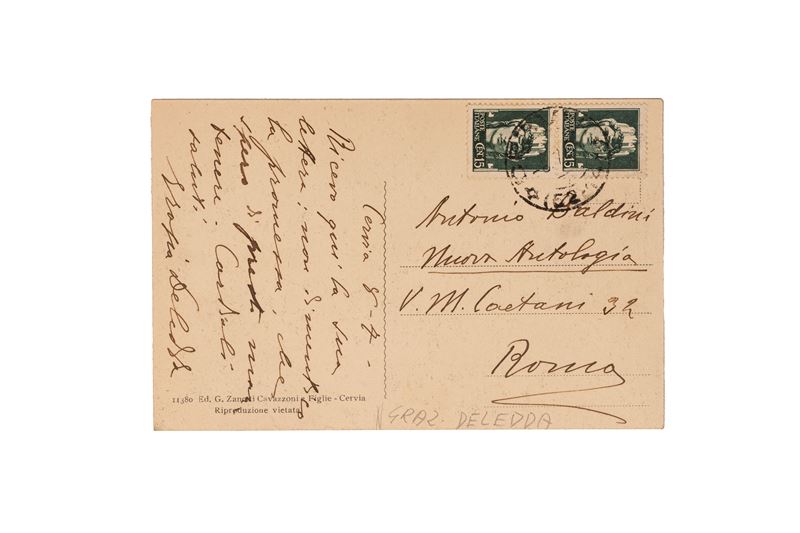 Cervia 8-7-
Ricevo qui la sua
lettera: non dimentico
la promessa, che
spero di presto man
tenere. Cordiali
saluti
Grazia Deledda
11380 Ed. G. Zanelli Cavazzoni e Figlie - Cervia
Riproduzione vietata
POSTE ITALIANE CENT. 15
POSTE ITALIANE CENT. 15
Antonio Baldini
Nuova Antologia
V. M. Caetani 32
Roma
GRAZ. DELEDDA